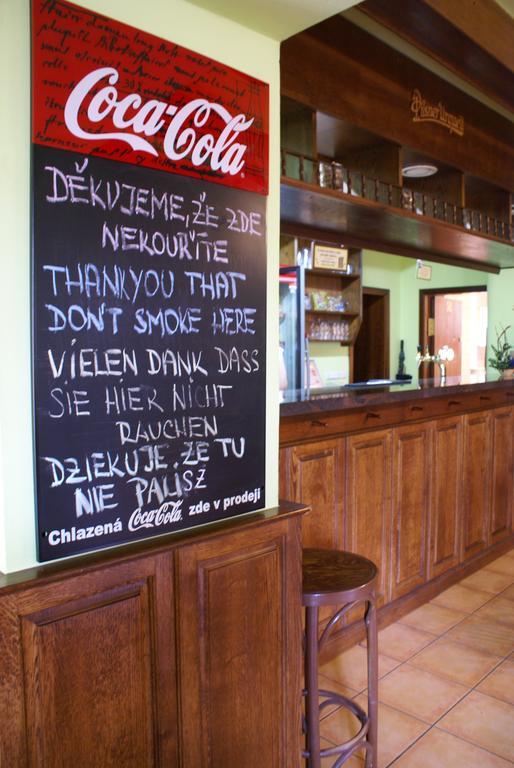 Coca-Cola
DĚKUJEME, ŽE ZDE
NEKOUŘÍTE
THANK YOU THAT
DON'T SMOKE HERE
VIELEN DANK DASS
SIE HIER NICHT
RAUCHEN
DZIEKUJE, ŻE TU
NIE PALISZ
Chlazená Coca-Cola zde v prodeji
Pilsner Urquell